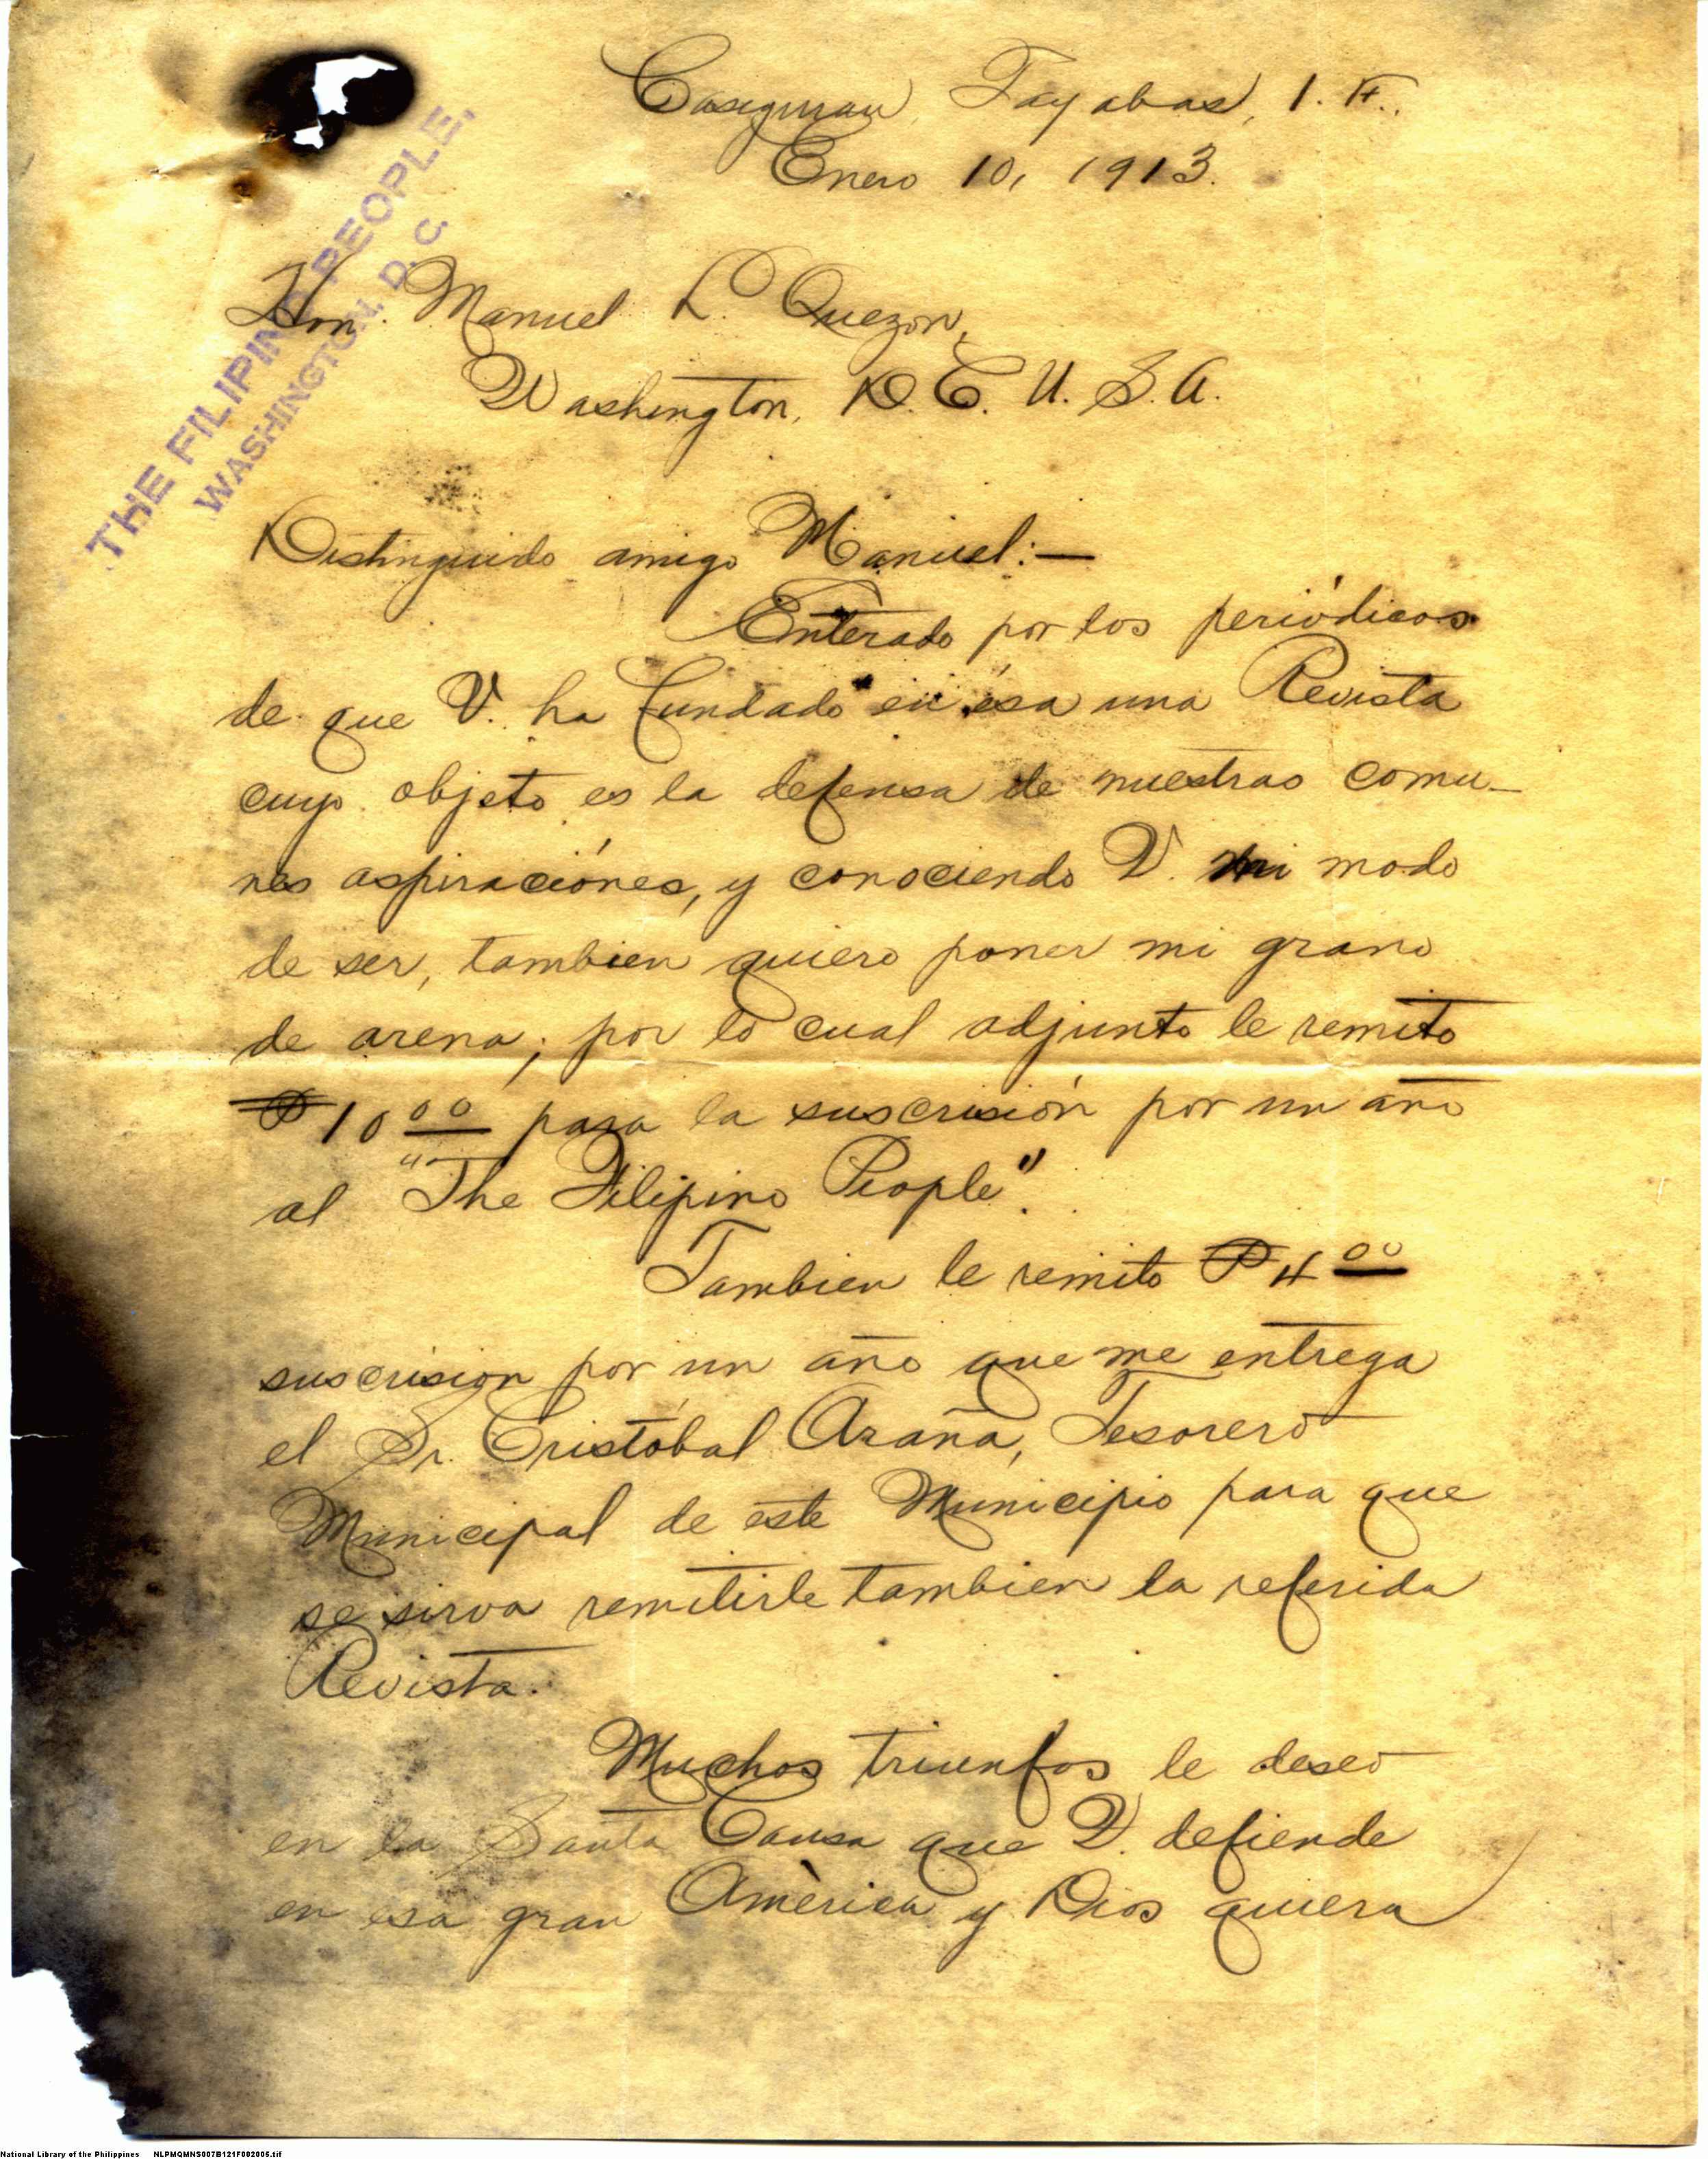 Casiguran, Tayabas, I. F.,
Enero 10, 1913.
THE FILIPINO PEOPLE,
WASHINGTON, D. C.
Hon. Manuel L. Quezon,
Washington, D. C. U. S. A.
Distinguido amigo Manuel:—
Enterado por los periódicos
de que V. ha fundado en ésa una Revista
cuyo objeto es la defensa de nuestras comu-
nes aspiraciónes, y conociendo V. mi modo
de ser, tambien quiero poner mi grano
de arena; por lo cual adjunto le remito
₱10 00 para la suscrisión por un año
al "The Filipino People".
Tambien le remito ₱4 00
suscrision por un año que me entrega
el Sr. Cristóbal Azaña, Tesorero
Municipal de este Municipio para que
se sirva remitirle tambien la referida
Revista.
Muchos triunfos le deseo
en la Santa Causa que V. defiende
en esa gran Amèrica y Dios quiera
National Library of the Philippines NLPMQMNS007B121F002005.tif